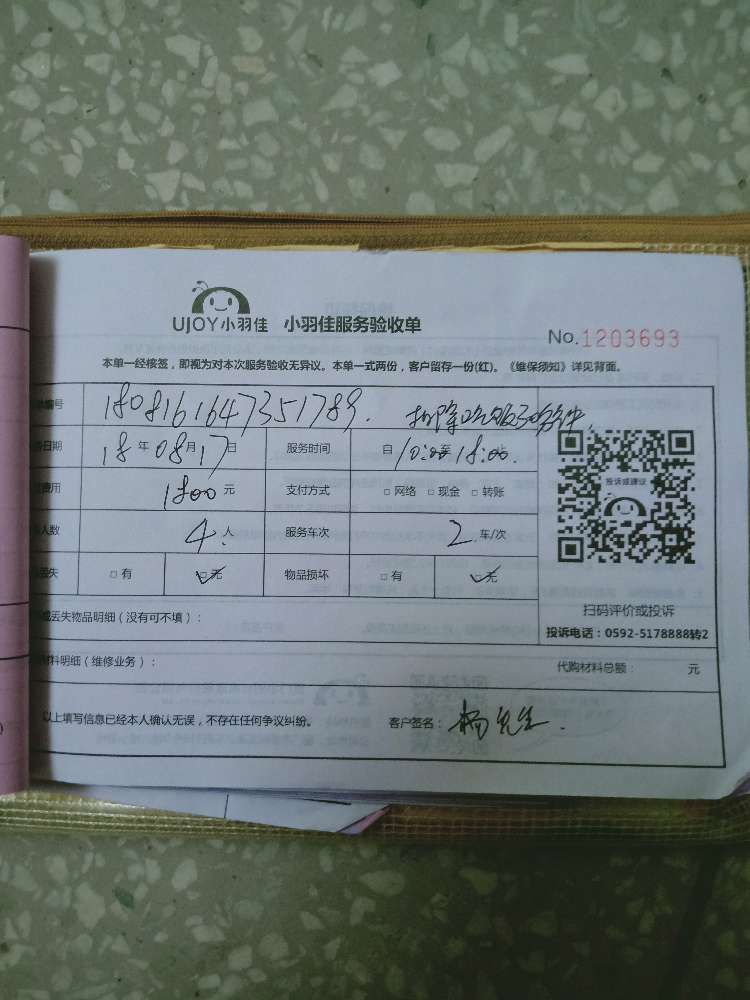 UJOY小羽佳 小羽佳服务验收单
No.1203693
本单一经接签，即视为对本次服务验收无异议。本单一式两份，客户留存一份(红)。《维保须知》详见背面。
编号 1808161647351789.
日期 18年08月17日 服务时间 自10:00至18:00.
费用 1800元 支付方式 □网络 □现金 □转账
人数 4人 服务车次 2车/次
失 □有 □无 物品损坏 □有 □无
投诉或建议
扫码评价或投诉
投诉电话：0592-5178888转2
丢失物品明细（没有可不填）：
料明细（维修业务）： 代购材料总额： 元
以上填写信息已经本人确认无误，不存在任何争议纠纷。 客户签名：杨先生.